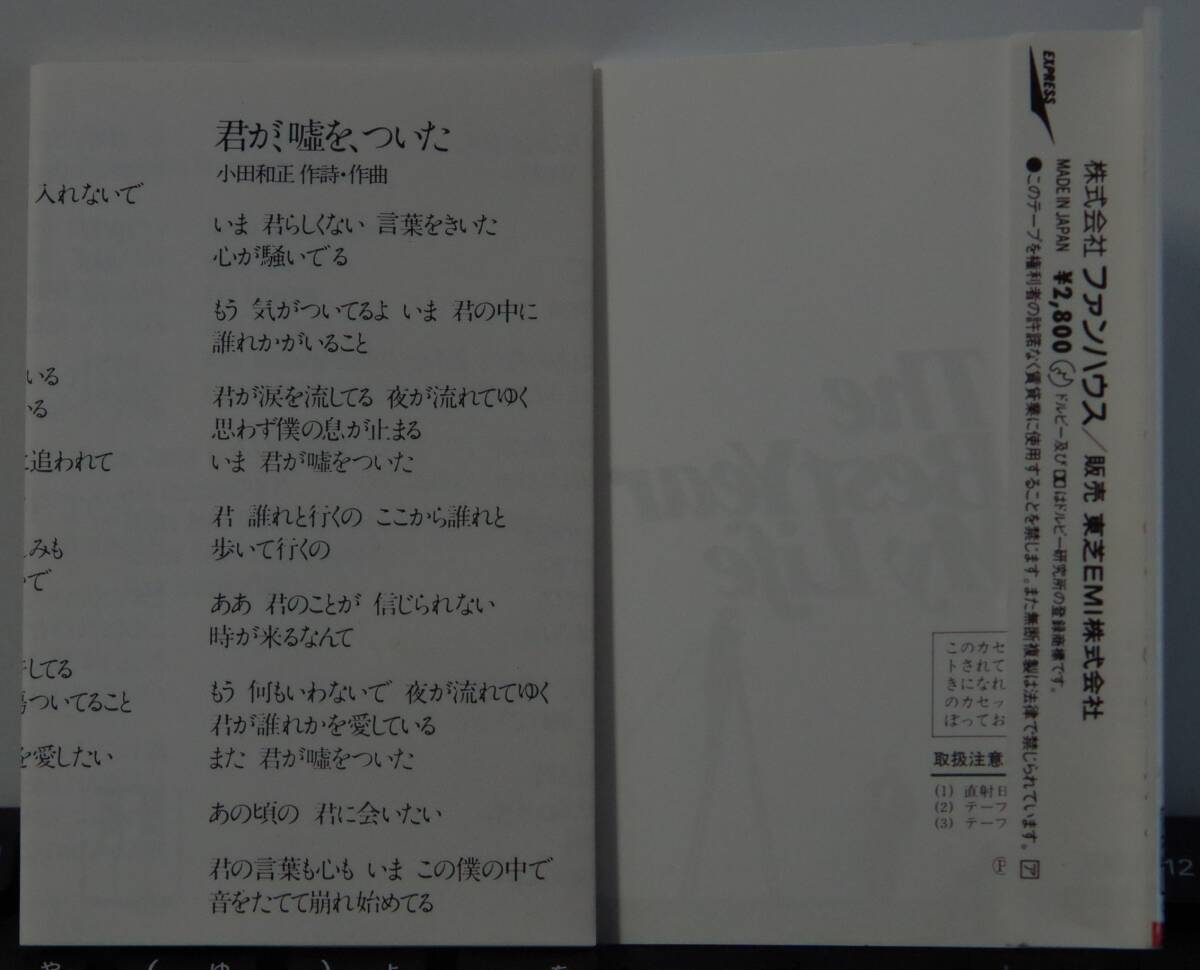 君が、嘘を、ついた
小田和正 作詩・作曲
いま 君らしくない 言葉をきいた
心が騒いでる
もう 気がついてるよ いま 君の中に
誰れかがいること
君が涙を流してる 夜が流れてゆく
思わず僕の息が止まる
いま 君が嘘をついた
君 誰れと行くの ここから誰れと
歩いて行くの
ああ 君のことが 信じられない
時が来るなんて
もう 何もいわないで 夜が流れてゆく
君が誰れかを愛している
また 君が嘘をついた
あの頃の 君に会いたい
君の言葉も心も いま この僕の中で
音をたてて崩れ始めてる
入れないで
いる
いる
に追われて
みも
で
してる
傷ついてること
を愛したい
The
Best Year
Of My Life
EXPRESS
株式会社 ファンハウス/販売 東芝EMI株式会社
MADE IN JAPAN ¥2,800 ドルビー及びはドルビー研究所の登録商標です。
●このテープを権利者の許諾なく賃貸業に使用することを禁じます。また無断複製は法律で禁じられています。ア
このカセ
トされて
きになれ
のカセッ
ぼってお
取扱注意
(1) 直射日
(2) テープ
(3) テープ
Ⓟ
12
や ( ゆ ) よ